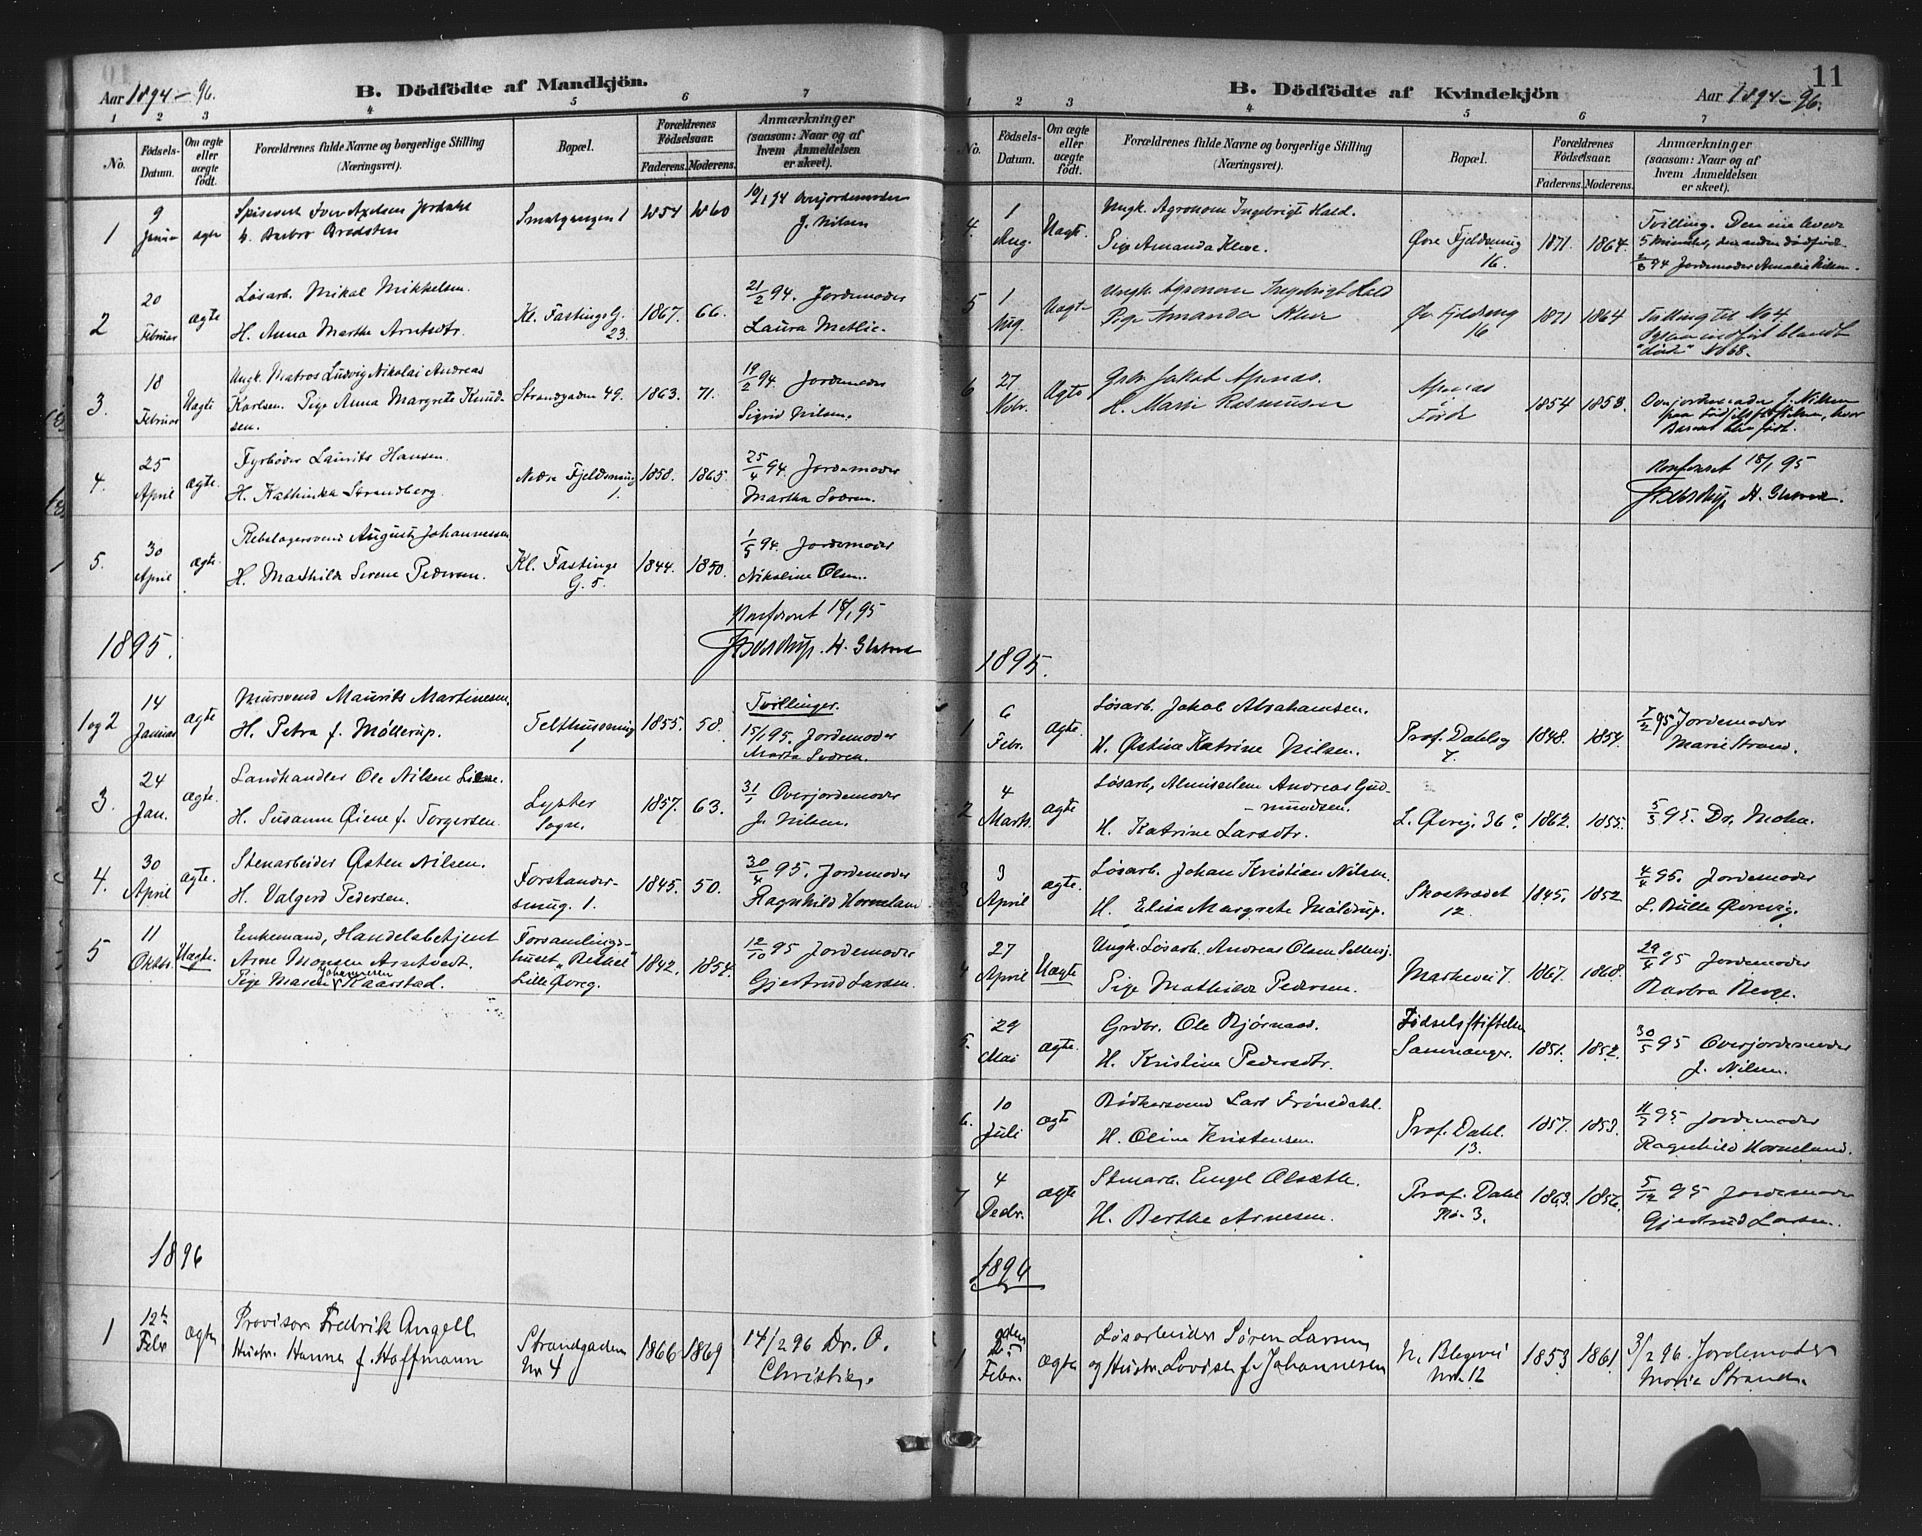 Aar 1894-96.
B. Dödfödte af Mandkjön.
1 2 3 4 5 6 7
No.
Födsels-Datum.
Om ægte eller uægte födt.
Forældrenes fulde Navne og borgerlige Stilling
(Næringsvei).
Bopæl.
Forældrenes Födselsaar.
Faderens. Moderens.
Anmærkninger
(saasom: Naar og af
hvem Anmeldelsen
er skeet).
1
9
ægte
Smalgangen 1
1854 1860
10/1 94 Overjordemoder
J. Nilsen
2
20 Februar
ægte
Løsarb. Mikal Mikkelsen.
H. Anna Marthe Arntsdtr.
Kl. Fastings G. 23.
1867. 66.
21/2 94. Jordemoder
Laura Metlie.
3.
18 Februar
Uægte
Ungk. Matros Ludvig Nikolai Andreas
Karlsen. Pige Anna Margrete Knud-
sen.
Strandgaden 49.
1863. 71.
19/2 94. Jordemoder
Sigrid Nilsen.
4.
25 April
ægte.
Fyrbøder Laurits Hansen.
H. Kathinka Strandberg.
Nedre Fjeldsmug 1.
1858. 1865.
25/4 94. Jordemoder
Martha Sværen.
5.
30 April
ægte.
Rebslagersvend August Johannessen
H. Mathilde Serene Pedersen.
Kl. Fastings G. 5.
1844. 1850.
1/5 94. Jordemoder
Nikoline Olsen.
Konfereret 18/1 95
1895.
1 og 2
14 Januar
ægte
Mursvend Maurits Martinesen.
H. Petra f. Møllerup.
Telthussmug 1
1855. 58.
Tvillinger.
15/1 95. Jordemoder
Marta Sværen.
3.
24 Jan.
ægte.
Landhandler Ole Nilsen
H. Susanne Øiene f. Torgersen.
Lyster Sogn.
1857. 63.
31/1 Overjordemoder
J. Nilsen.
4.
30 April
ægte.
Stenarbeider Østen Nilsen.
H. Valgerd Pedersen.
Forstander-
smug. 1.
1845. 50.
30/4 95. Jordemoder
Ragnhild Horneland.
5
11 Oktbr.
Uægte.
Enkemand, Handelsbetjent
Arne Monsen Arnetvedt.
Pige Maren Johannesen Kaarstad.
Forsamlings-
huset "Bethel"
Lille Øvreg.
1842. 1854.
12/10 95 Jordemoder
Gjertrud Larsen.
1896
1
12te Febr
ægte
Provisor Fredrik Angell
Hustr. Hanna f. Hoffmann
Strandgaden Nr 4
1866 1869
14/2 96 Dr. O.
Christie.
11
Aar 1894-96.
B. Dödfödte af Kvindekjön
1 2 3 4 5 6 7
No.
Födsels-Datum.
Om ægte eller uægte födt.
Forældrenes fulde Navne og borgerlige Stilling
(Næringsvei).
Bopæl.
Forældrenes Födselsaar.
Faderens. Moderens.
Anmærkninger
(saasom: Naar og af
hvem Anmeldelsen
er skeet).
4.
1 Aug.
Uægte
Ungk. Agronom Ingebrigt Hald.
Pige Amanda Kleve.
Øvre Fjeldsmug 16.
1871. 1864.
Tvilling. Den ene levede
5 Minuter, den anden dødfødt.
2/8 94 Jordemoder Amalie Nilsen.
5
1 Aug.
Uægte
Ungk. Agronom Ingebrigt Hald
Pige Amanda Kleve
Øv Fjeldsmug 16
1871 1864
Tvilling til No 4
"døde" No 68.
6
27 Novbr.
Ægte
Gbr Jakob Apenæs.
H. Marie Rasmussen
Apenæs
Førde
1854 1853.
Overjordemoder J. Nilsen
paa Fødselsstiftelsen, hvor
Barnet blev født.
Konfereret 18/1 95
1895.
1
6 Febr.
ægte.
Løsarb. Jakob Abrahamsen.
H. Østine Katrine Nilsen.
Prof. Dahlsg 7.
1848. 1854.
7/2 95 Jordemoder
Marie Strand.
2
4 Marts.
ægte
Løsarb, Almisselem Andreas Gud-
mundsen.
H. Katrine Larsdtr.
L. Øvreg. 36 c.
1862. 1855.
5/3 95. Dr. Mohn.
3
3 April
ægte.
Løsarb. Johan Kristian Nilsen.
H. Elisa Margrete Moldrup.
Skostrædet 12.
1845. 1852
4/4 95. Jordemoder
L. Bulle Øvrevig.
4
27 April
Uægte
Ungk. Løsarb. Andreas Olsen
Pige Mathilde Pedersen.
Markevei 7.
1867. 1868.
29/4 95 Jordemoder
Barbra Berge.
5.
29 Mai
ægte.
Grdbr. Ole Bjørnaas.
H. Kristine Pedersdtr.
Fødselsstiftelsen
Samnanger.
1851. 1852.
30/5 95 Overjordemoder
J. Nilsen.
6.
10 Juli
ægte
Bødkersvend Lars Frønsdahl.
H. Oline Kristensen.
Prof. Dahl. 13.
1857. 1853.
11/7 95. Jordemoder
Ragnhild Horneland.
7
4 Decbr.
ægte
Stenarb. Engel Alsæth.
H. Berthe Arnesen.
Prof. Dahl No. 3.
1863. 1856.
5/12 95 Jordemoder
Gjertrud Larsen.
1896
1
2den Febr.
ægte
Løsarbeider Søren Larsen
og Hustr. Lovise f. Johannesen
N. Blegevei Nr. 12
1853 1861
3/2 96. Jordemoder
Marie Strand.